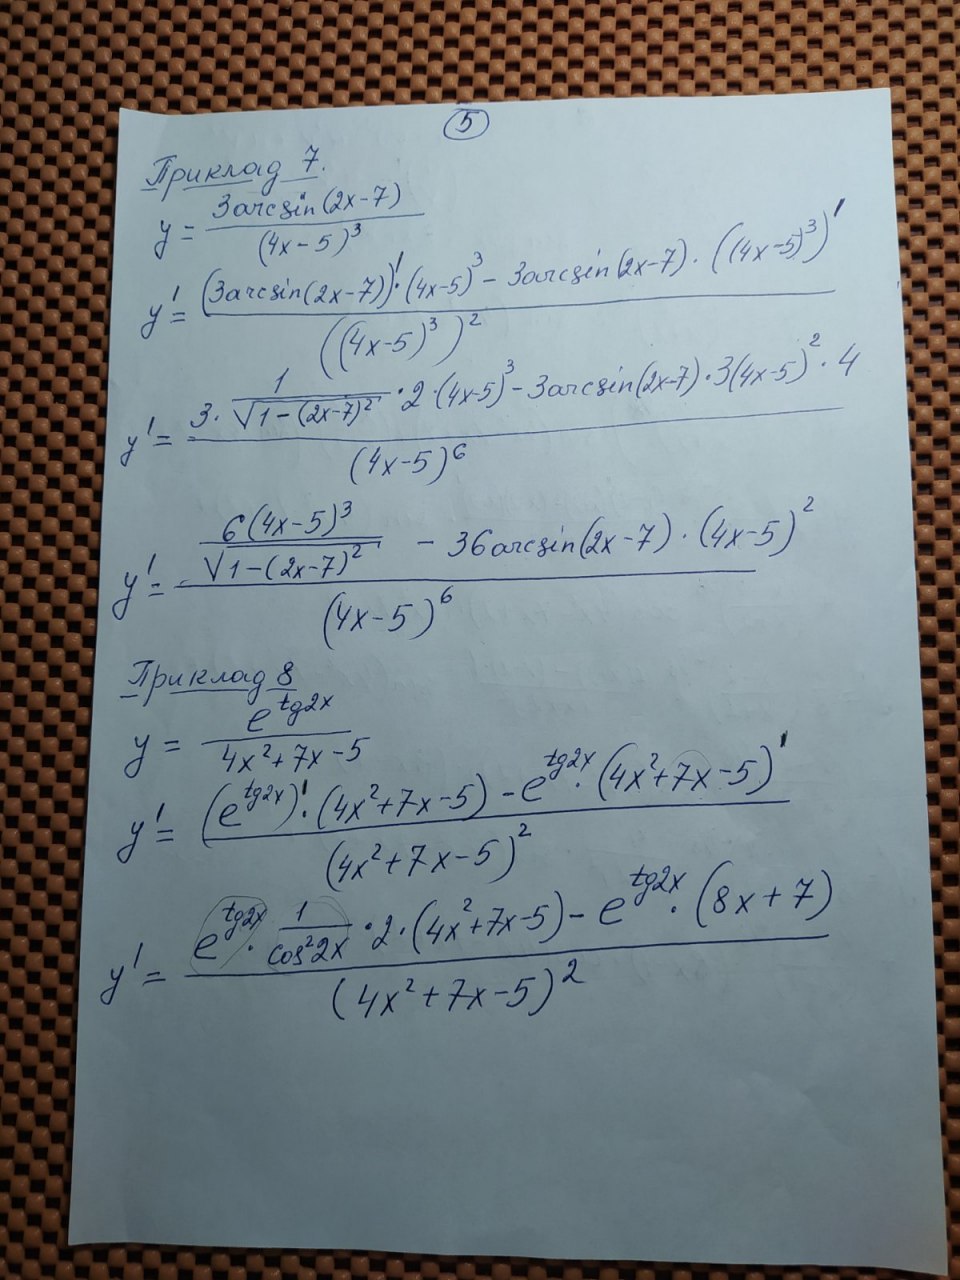 5
Приклад 7.
y = 3arcsin(2x-7) / (4x-5)³
y' = ((3arcsin(2x-7))'·(4x-5)³ - 3arcsin(2x-7)·((4x-5)³)') / ((4x-5)³)²
y' = (3· 1/√(1-(2x-7)²) ·2·(4x-5)³ - 3arcsin(2x-7)·3(4x-5)²·4) / (4x-5)⁶
y' = (6(4x-5)³/√(1-(2x-7)²) - 36arcsin(2x-7)·(4x-5)²) / (4x-5)⁶
Приклад 8
y = e^(tg2x) / (4x²+7x-5)
y' = ((e^(tg2x))'·(4x²+7x-5) - e^(tg2x)·(4x²+7x-5)') / (4x²+7x-5)²
y' = (e^(tg2x)· 1/cos²2x ·2·(4x²+7x-5) - e^(tg2x)·(8x+7)) / (4x²+7x-5)²